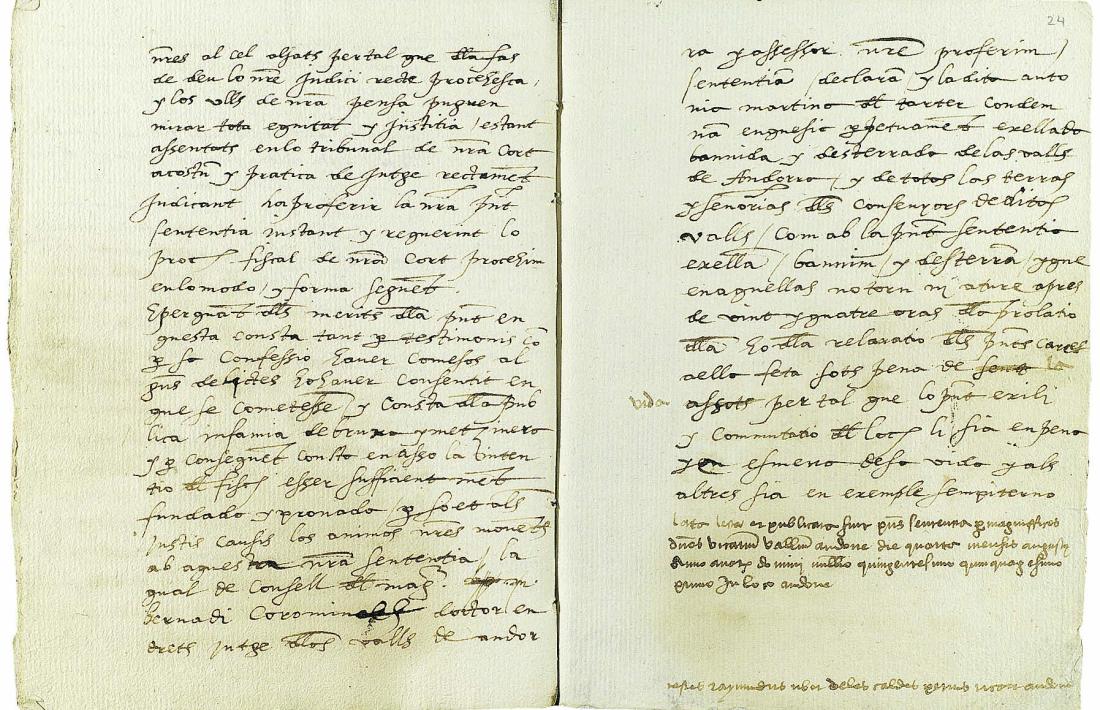 nres al cel alsats per tal que dla fas
de deu lo nre Judici recte procehesca /
y los ulls de nra pensa puguen
mirar tota equitat y Justitia / estant
assentats en lo tribunal de nra Cort
acostu y pratica de Jutge rectamet
Judicant / la proferir la nra pnt
sententia instant y requerint lo
proc fiscal de nra Cort procehim
en lo modo / y forma seguet
E per quat dls merits dla pnt en
questa consta tant p testimonis co
p sa Confessio haver Comesos al
guns delictes ho haver Consentit en
que se Cometesse / y Consta dla pub
lica infamia de bruxa y metzinera
y p conseguet Consta en asso la inten
tio dl fisch esser suffiaent met
fundada y provada / p so et als
Justis causis los animos nres movets
ab aquesta nra sententia / la
qual de Consell dl mag m
bernadi Coromines doctor en
drets Jutge dlos valls de andor
24
ra y assessor nre proferim /
sententia declara y la dita anto
nia martina dl tarter Condem
na enquesic ppetuamet exellada
bannida y desterrada de las valls
de Andorra / y de totas las terras
y senorias dls Consenyors de ditas
valls / Com ab la pnt sententia
exella / bannim / y desterra / y que
en aquellas no torn ni ature apres
de vint y quatre oras dla prolatio
dlla ho dla relaxatio dls pnts carcels
a ella feta sots pena de la
vida
assots per tal que lo pnt exili
y Commutatio dl loch li sia en pena
y en esmena de sa vida y als
altres sia en exemple sempiterno
lata lecta et publicata fuit pns sententia p magnificos
dnos vicarium vallium andorre die quarto mensis augusti
anno a nat domini millo quingentesimo quinquagesimo
primo In loco andorre
testes raymundus deles caldes